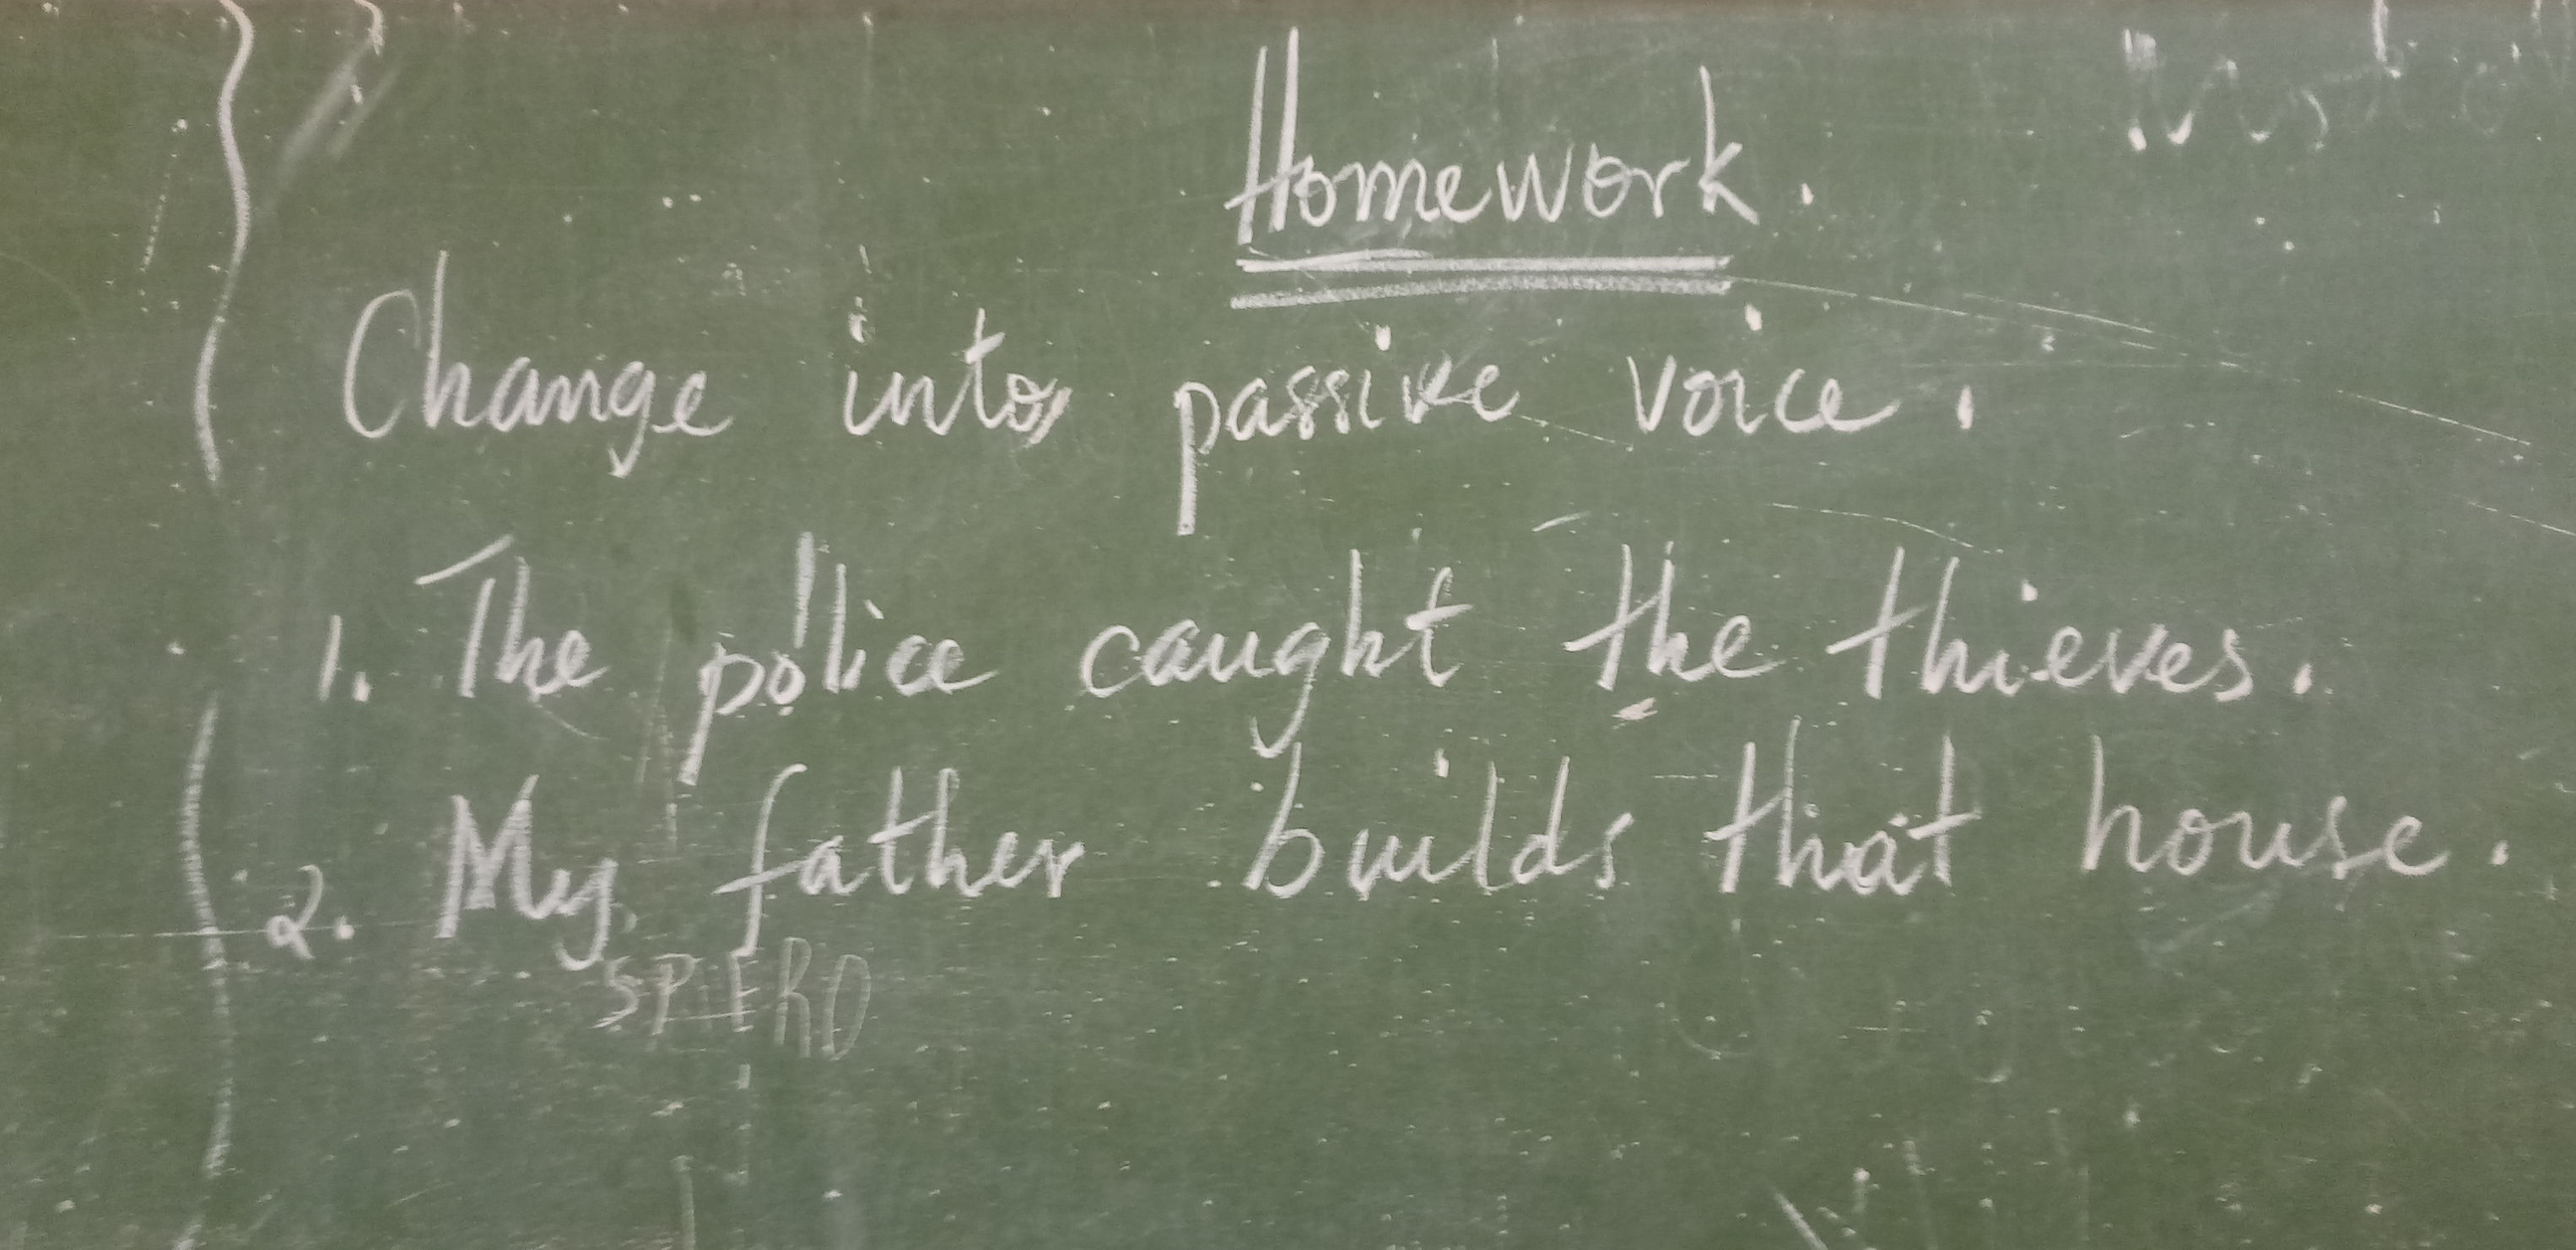 Homework.
Change into passive voice.
1. The police caught the thieves.
2. My father builds that house.